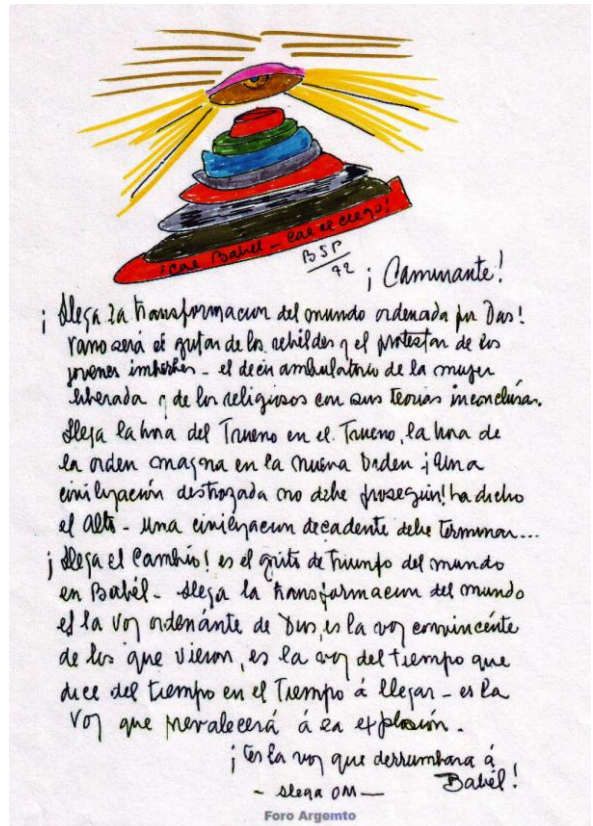 ¡Cae Babel - Cae el ciego!
BSP
72
¡Caminante!
¡Llega la transformacion del mundo ordenada por Dios!
vano será el gritar de los rebeldes y el protestar de los
jovenes imberbes - el decir ambulatorio de la mujer
liberada y de los religiosos con sus teorias inconclusas.
Llega la hora del Trueno en el Trueno, la hora de
la orden magna en la nueva Orden ¡Una
civilización destrozada no debe proseguir! ha dicho
el Alto - una civilizacion decadente debe terminar...
¡Llega el Cambio! es el grito de triunfo del mundo
en Babél - llega la transformacion del mundo
es la voz ordenante de Dios, es la voz convincente
de los que vieron, es la voz del tiempo que
dice del tiempo en el Tiempo á llegar - es la
voz que prevalecerá á la explosión.
¡Es la voz que derrumbara á
Babél!
- llega OM -
Foro Argemto